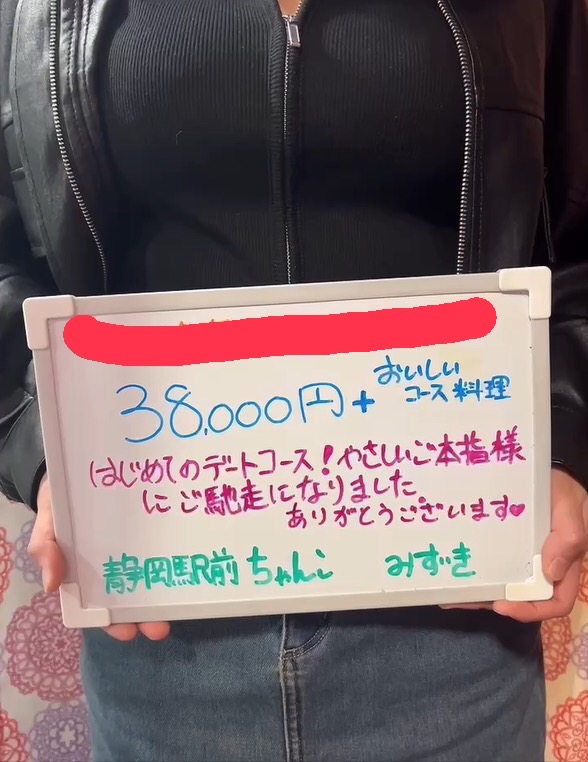 38,000円+ おいしいコース料理
はじめてのデートコース!やさしいご本指様
にご馳走になりました。
ありがとうございます♥
静岡駅前ちゃんこ みずき